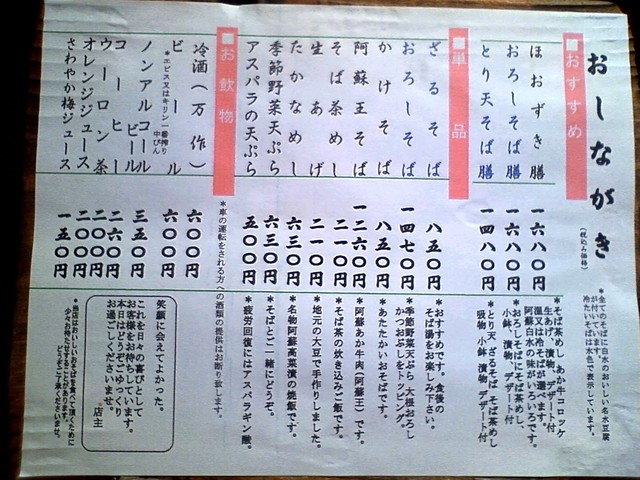 おしながき
(税込み価格)
*全てのそばに白水のおいしい名水豆腐
が付いています。
冷たいそばは水色で表示しています。
■おすすめ
ほおずき膳 一六八〇円
*そば茶めし あか牛コロッケ
生あげ 漬物 デザート付
温又は冷そばが選べます。
阿蘇白水の味がいろいろです。
おろしそば膳 一六八〇円
*おろしそばにそば茶めし、
小鉢 漬物 デザート付
とり天そば膳 一四八〇円
*とり天 ざるそば そば茶めし
吸物 小鉢 漬物 デザート付
■単品
ざるそば 八五〇円
*おすすめです。食後の
そば湯もお楽しみ下さい。
おろしそば 一四七〇円
*季節野菜天ぷら 大根おろし
かつおぶしをトッピング。
かけそば 八五〇円
*あたたかいおそばです。
阿蘇王そば 一二六〇円
*阿蘇あか牛肉(阿蘇王)です。
そば茶めし 二一〇円
*そば茶の炊き込みご飯です。
生あげ 二一〇円
*地元の大豆で手作りしました。
たかなめし 六三〇円
*名物阿蘇高菜漬の焼飯です。
季節野菜天ぷら 六三〇円
*そばとご一緒にどうぞ。
アスパラの天ぷら 五〇〇円
*疲労回復にはアスパラギン酸。
■お飲物
*車の運転をされる方への酒類の提供はお断り致します。
冷酒(万作) 六〇〇円
ビール 六〇〇円
*エビス又はキリン一番搾り
中びん
ノンアルコールビール 三五〇円
コーヒー 二六〇円
ウーロン茶 二〇〇円
オレンジジュース 二〇〇円
さわやか梅ジュース 一五〇円
笑顔に会えてよかった。
これを日々の喜びとして
お客様をお待ちしています。
本日はどうぞごゆっくり
お過ごしくださいませ。
店主
*当店はおいしいおそばを食べて頂くために
少々お待たせすることがあります。
どうぞご了承くださいませ。